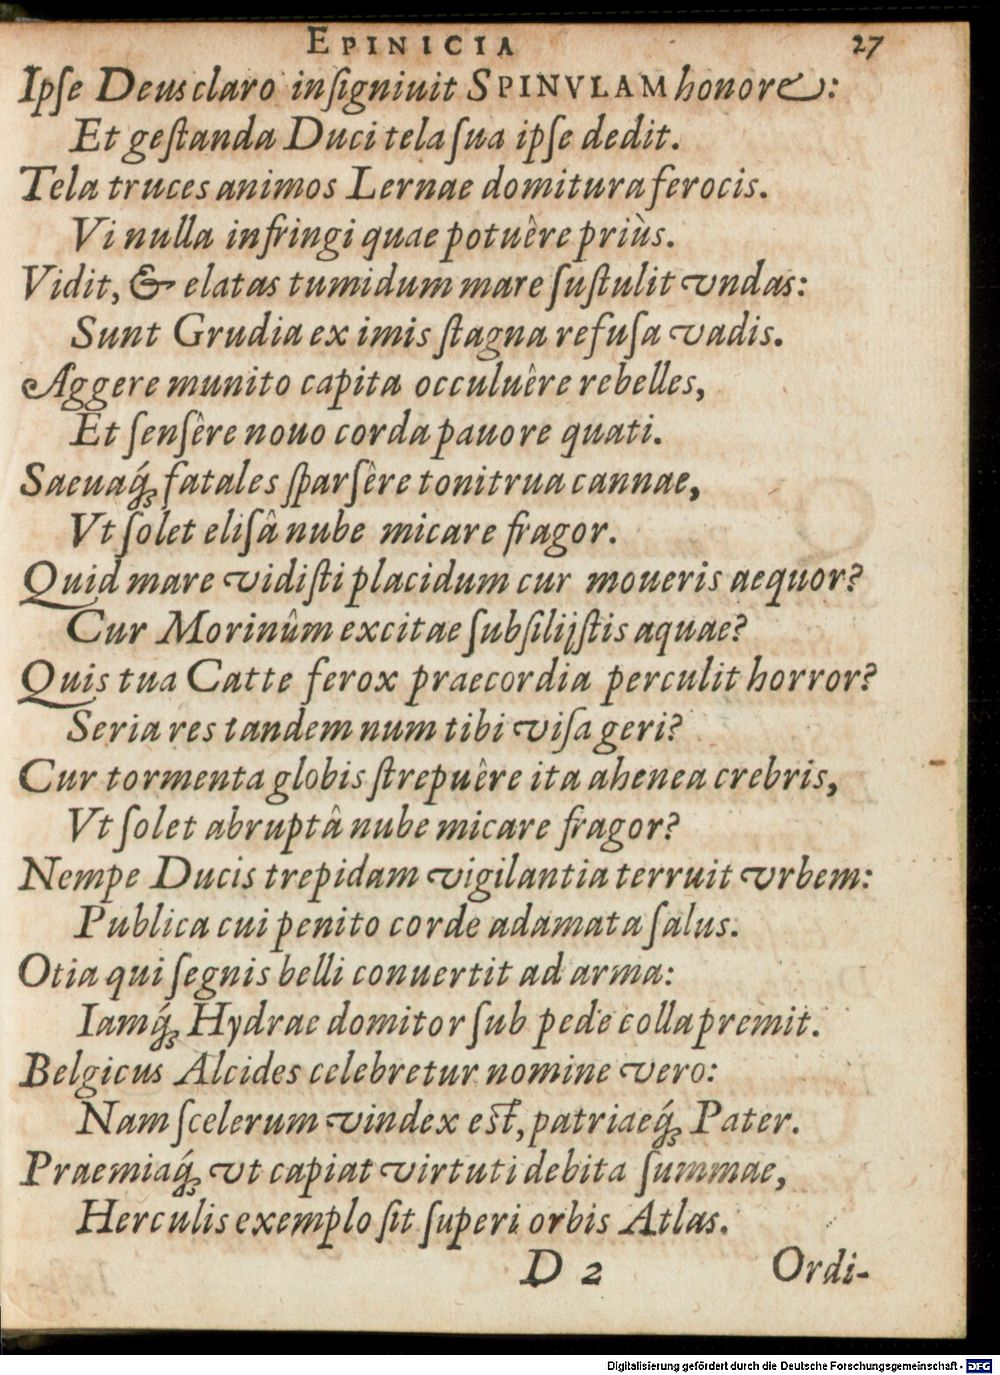 EPINICIA 27
Ipſe Deus claro inſigniuit SPINVLAM honore:
Et geſtanda Duci tela ſua ipſe dedit.
Tela truces animos Lernae domitura ferocis.
Vi nulla infringi quae potuêre priùs.
Vidit, & elatas tumidum mare ſuſtulit vndas:
Sunt Grudia ex imis ſtagna refuſa vadis.
Aggere munito capita occuluêre rebelles,
Et ſenſêre nouo corda pauore quati.
Saeuaq́ꝫ fatales ſparſêre tonitrua cannae,
Vt ſolet eliſâ nube micare fragor.
Quid mare vidiſti placidum cur moueris aequor?
Cur Morinûm excitae ſubſilijſtis aquae?
Quis tua Catte ferox praecordia perculit horror?
Seria res tandem num tibi viſa geri?
Cur tormenta globis ſtrepuêre ita ahenea crebris,
Vt ſolet abruptâ nube micare fragor?
Nempe Ducis trepidam vigilantia terruit vrbem:
Publica cui penito corde adamata ſalus.
Otia qui ſegnis belli conuertit ad arma:
Iamq́ꝫ Hydrae domitor ſub pede colla premit.
Belgicus Alcides celebretur nomine vero:
Nam ſcelerum vindex eſt, patriaeq́ꝫ Pater.
Praemiaq́ꝫ vt capiat virtuti debita ſummae,
Herculis exemplo ſit ſuperi orbis Atlas.
D 2 Ordi-
Digitalisierung gefördert durch die Deutsche Forschungsgemeinschaft - DFG